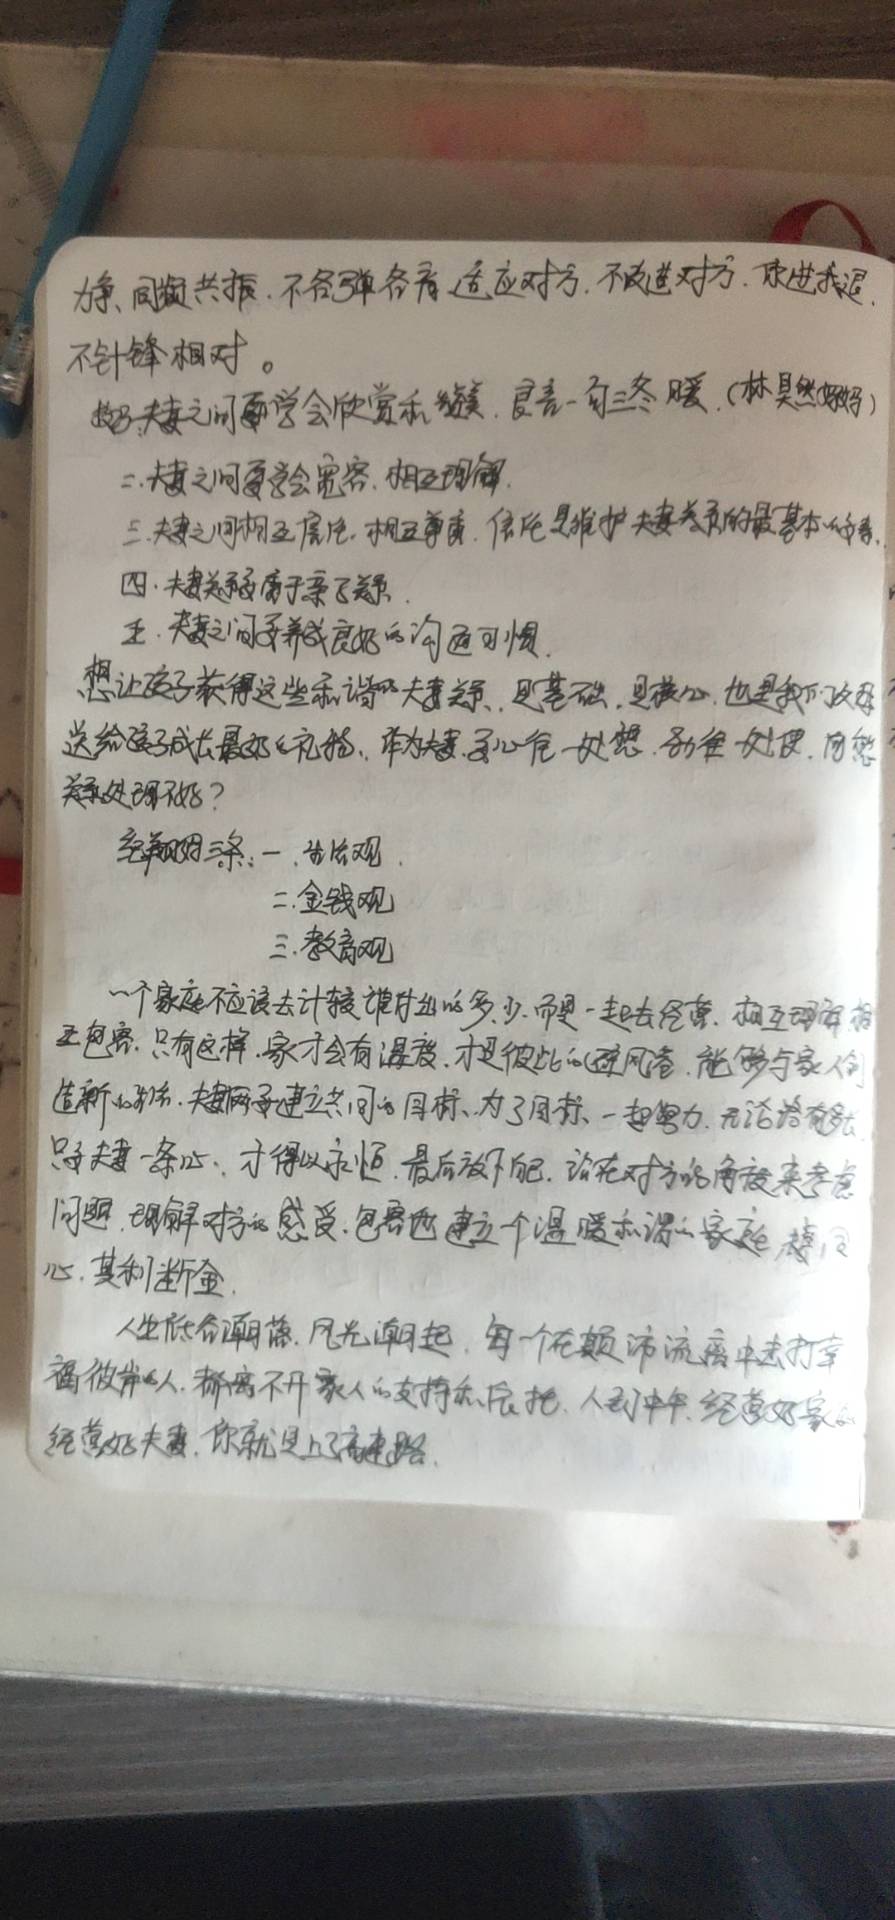 力争、同频共振、不各弹各有 适应对方、不改造对方、你进我退、
不针锋相对。
夫妻之间要学会欣赏和赞美、良言一句三冬暖、(林昊然妈妈)
二、夫妻之间要学会宽容、相互理解、
三、夫妻之间相互信任、相互尊重、信任是维护夫妻关系的最基本的
四、夫妻关系要高于亲子关系、
五、夫妻之间要养成良好的沟通习惯、
想让孩子获得这些和谐的夫妻关系、是基础、是核心、也是我们父母
送给孩子成长最好的礼物、作为夫妻、要心往一处想、劲往一处使、何愁
关系处理不好?
三条:一、生活观、
二、金钱观
三、教育观
一个家庭不应该去计较谁付出的多少、而是一起去经营、相互理解相
互包容、只有这样、家才会有温度、才是彼此的避风港、能够与家人创
造新的生活、夫妻两要建立共同的目标、为了目标、一起努力、无论路有多长
只要夫妻一条心、才得以永恒、最后放下自己、站在对方的角度来考虑
问题、理解对方的感受、包容 建立一个温暖和谐的家庭 同
心、其利断金、
人生低谷潮落、风光潮起、每一个在颠沛流离中去打幸
福彼岸的人、都离不开家人的支持和信任、人到中年、经营好家
经营好夫妻、你就是上了高速路、